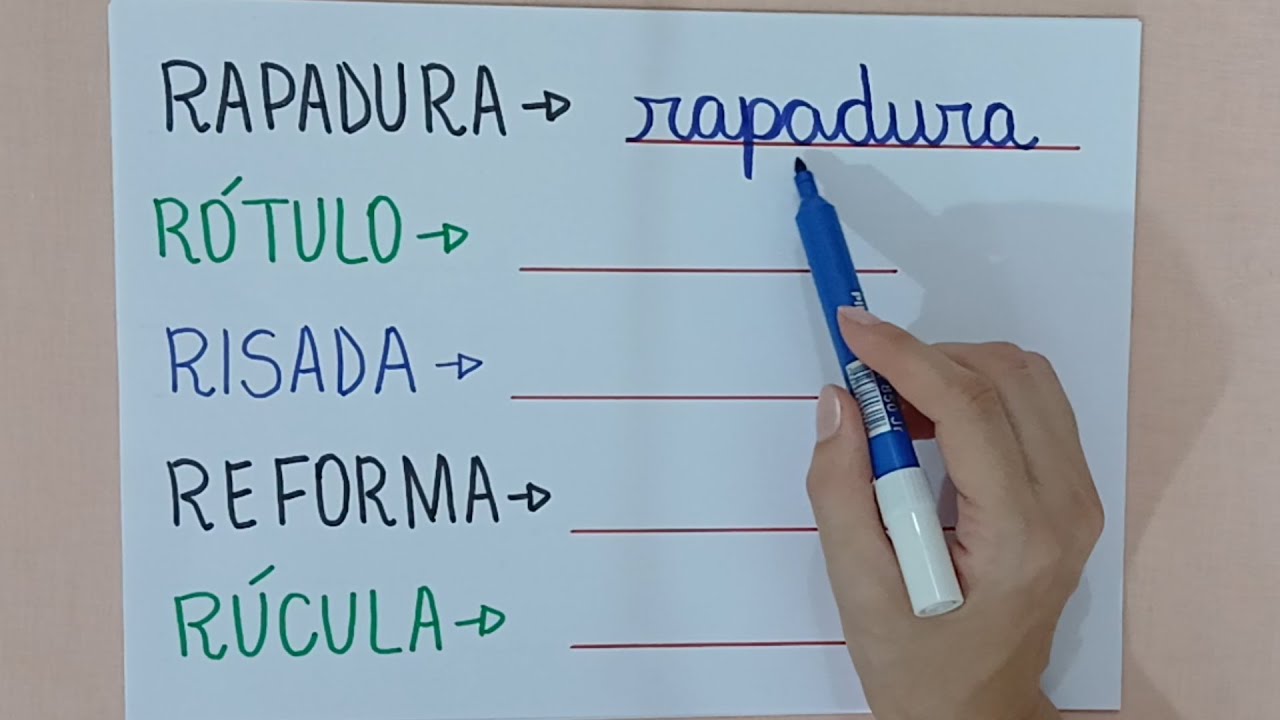 RAPADURA → rapadura
RÓTULO →
RISADA →
REFORMA →
RÚCULA →